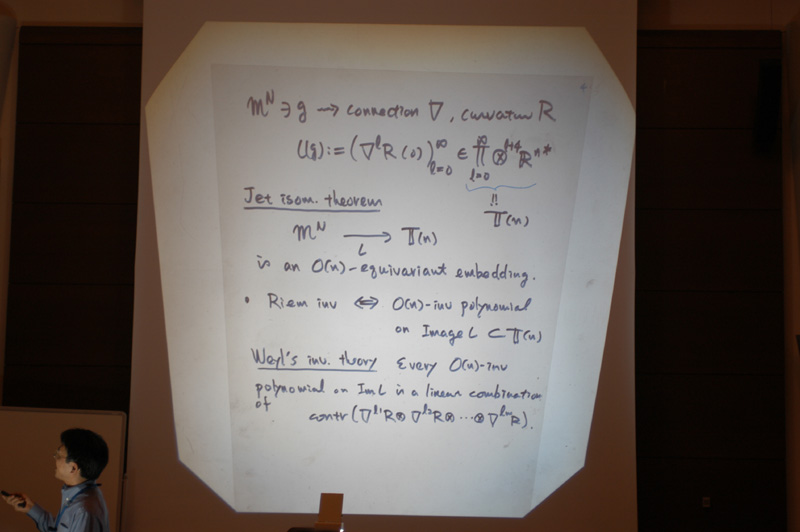 𝓜ᴺ ∋ g → connection ∇, curvature R
L(g) := (∇ˡR(0))_{l=0}^{∞} ∈ ∏_{l=0}^{∞} ⊗^{l+4} ℝⁿ*
!!
𝕋(n)
Jet isom. theorem
𝓜ᴺ →_L 𝕋(n)
is an O(n)-equivariant embedding.
• Riem inv ⇔ O(n)-inv polynomial
on Image L ⊂ 𝕋(n)
Weyl's inv. theory Every O(n)-inv
polynomial on Im L is a linear combination
of contr(∇^{l₁}R⊗∇^{l₂}R⊗⋯⊗∇^{lₘ}R).